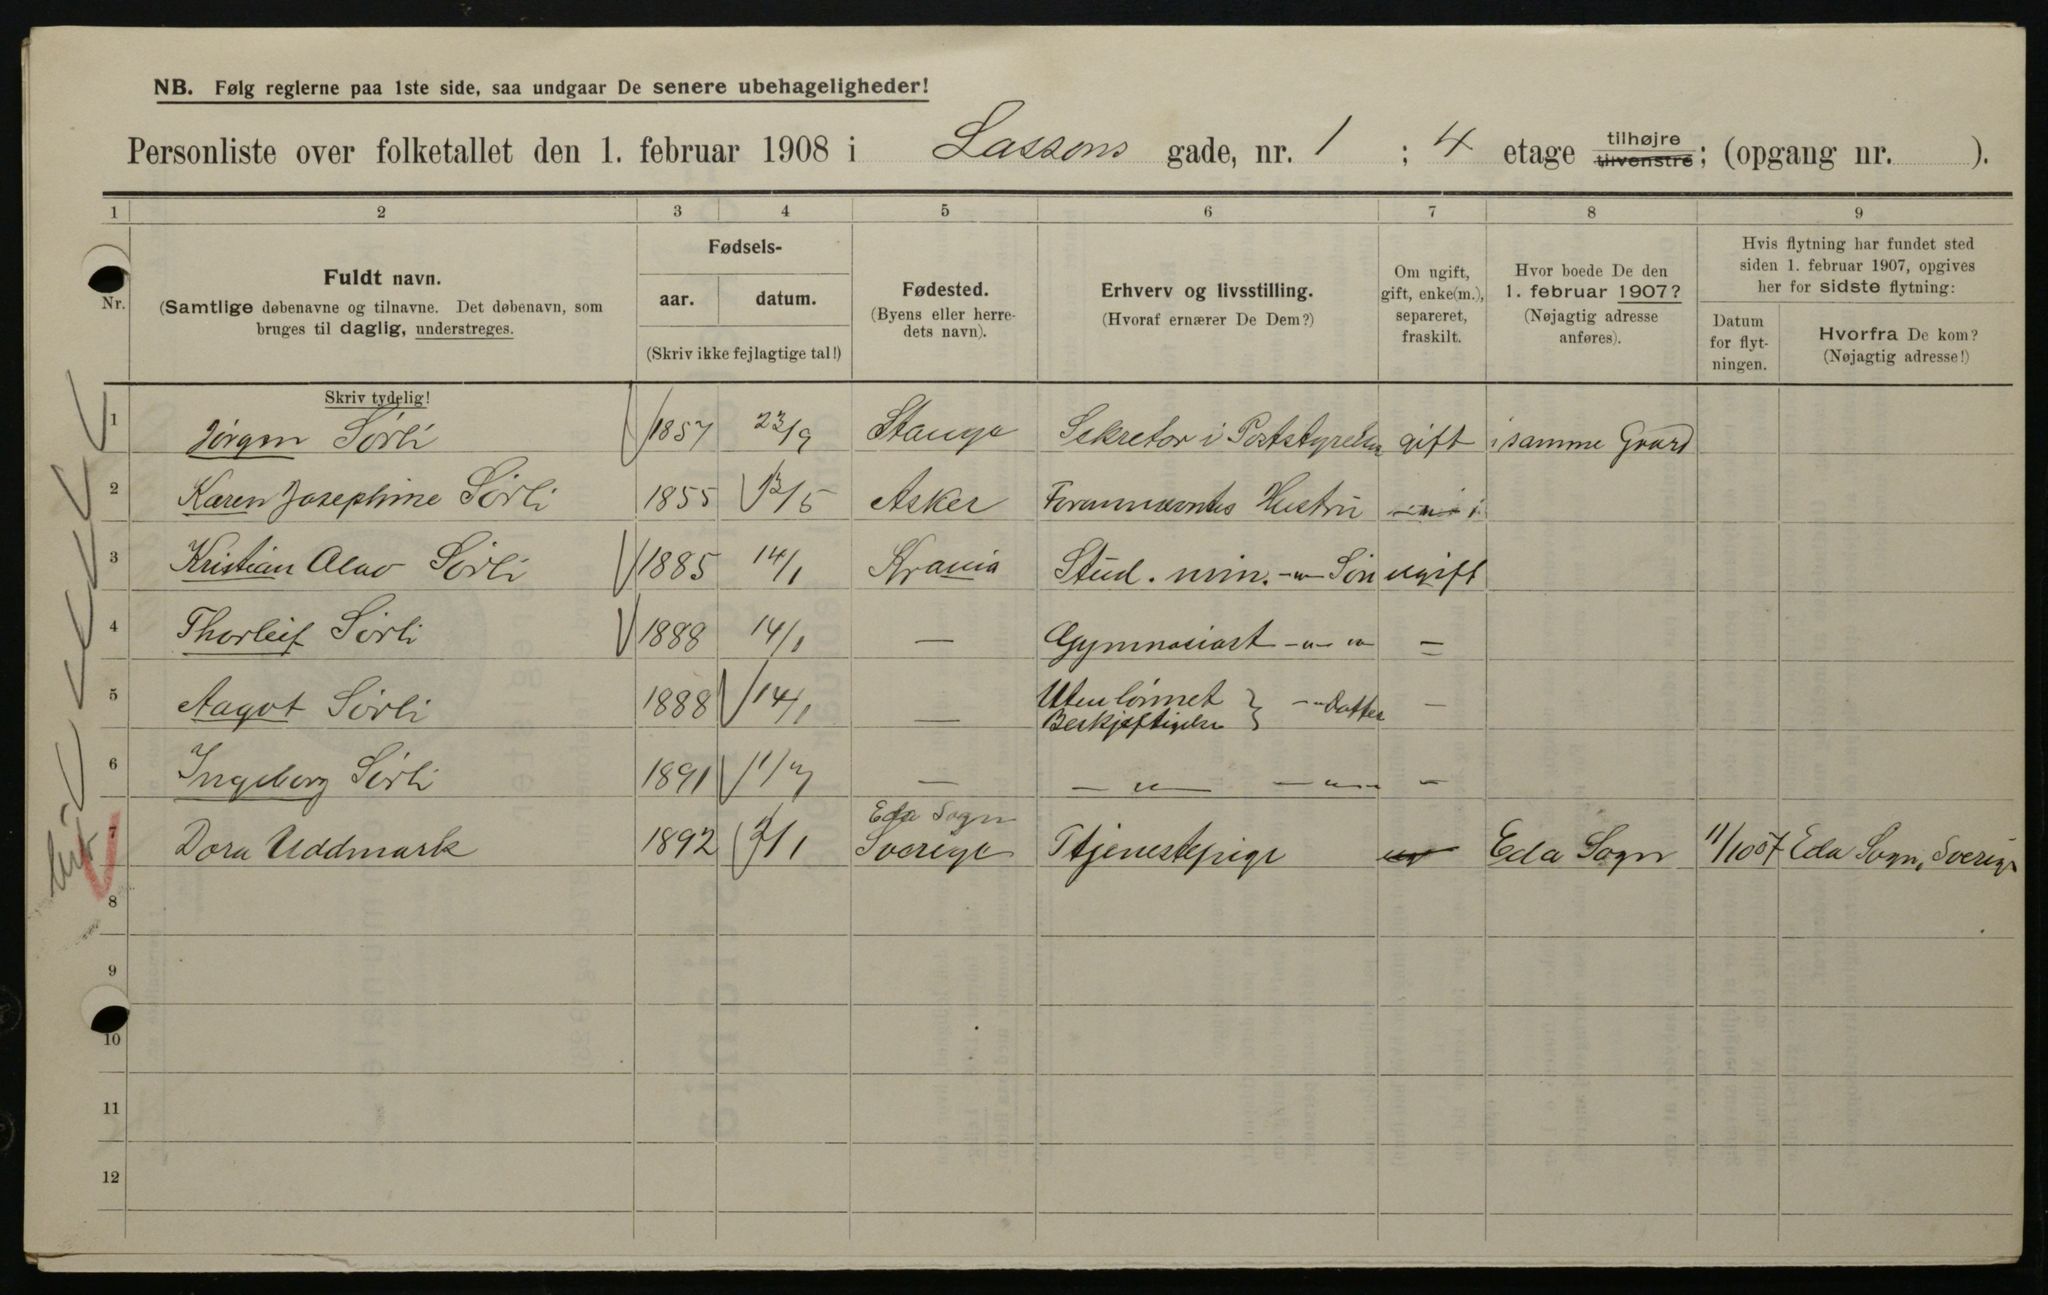 NB. Følg reglerne paa 1ste side, saa undgaar De senere ubehageligheder!
Personliste over folketallet den 1. februar 1908 i Lassons gade, nr. 1 ; 4 etage tilhøjre tilvenstre; (opgang nr. ).
1 2 3 4 5 6 7 8 9
Nr.
Fuldt navn.
(Samtlige døbenavne og tilnavne. Det døbenavn, som
bruges til daglig, understreges.
Skriv tydelig!
Fødsels-
aar. datum.
(Skriv ikke fejlagtige tal!)
Fødested.
(Byens eller herre-
dets navn).
Erhverv og livsstilling.
(Hvoraf ernærer De Dem?)
Om ugift,
gift, enke(m.),
separeret,
fraskilt.
Hvor boede De den
1. februar 1907?
(Nøjagtig adresse
anføres).
Hvis flytning har fundet sted
siden 1. februar 1907, opgives
her for sidste flytning:
Datum
for flyt-
ningen.
Hvorfra De kom?
(Nøjagtig adresse!)
1 Jørgen Sørli 1857 23/9 Stange Sekretær i Poststyrelsen gift i samme Gaard
2 Karen Josephine Sørli 1855 13/5 Asker Forannævntes Hustru -"-
3 Kristian Olav Sørli 1885 14/1 Krania Stud. min. -"- Søn ugift
4 Thorleif Sørli 1888 14/1 — Gymnasiast -"- "
5 Aagot Sørli 1888 14/1 — Uten lønnet Beskjæftigelse } -"- Datter -
6 Ingeborg Sørli 1891 11/7 — - " - - " - -
7 Dora Uddmark 1892 2/1 Eda Sogn Sverige Tjenestepige ug Eda Sogn 11/10 07 Eda Sogn, Sverige
8
9
10
11
12